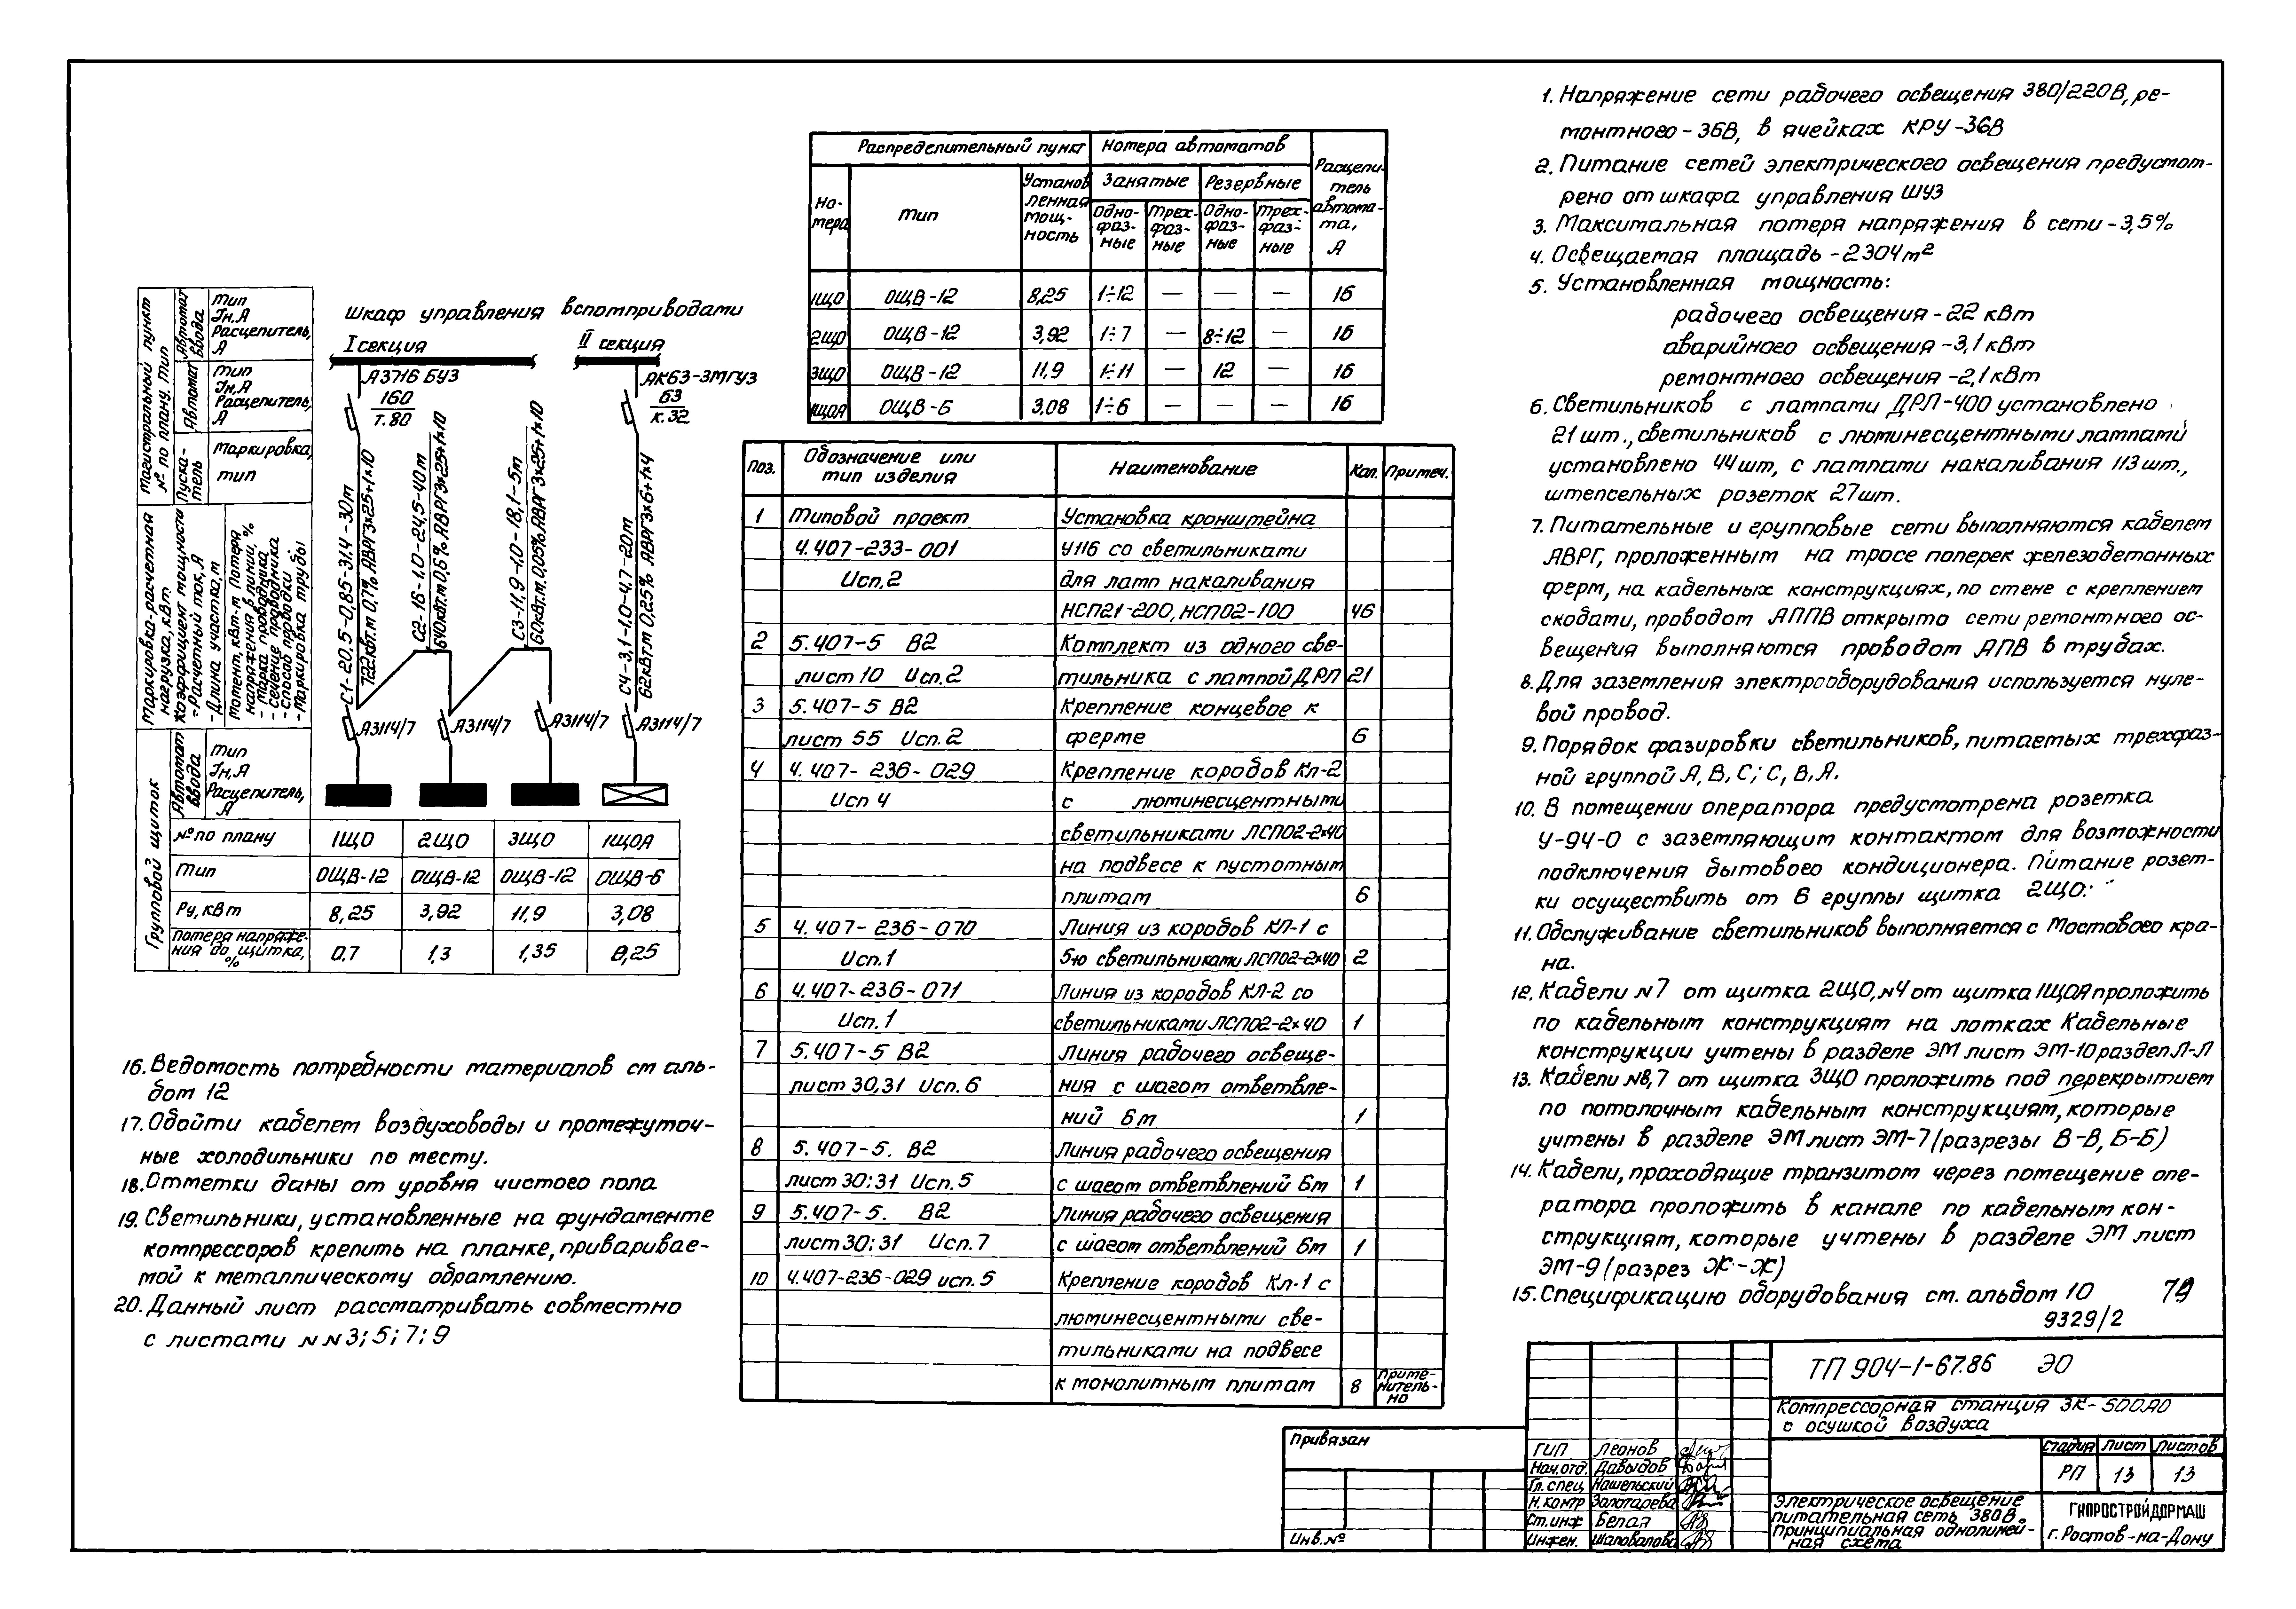 Магистральный пункт
№ по плану, Тип
Автомат ввода
Тип
Iн,А
Расцепитель,
А
Автомат
Тип
Iн,А
Расцепитель,
А
Пуска-
тель
Маркировка,
тип
Маркировка-расчетная
нагрузка, кВт
Коэффициент мощности
- Расчетный ток, А
- Длина участка, м
Момент, кВт·м Потеря
напряжения в линии, %
- марка проводника
- сечение проводника
- способ проводки
- Маркировка трубы
Групповой щиток
Автомат ввода
Тип
Iн,А
Расцепитель,
А
Шкаф управления вспомприводами
I секция
II секция
А3716 БУЗ
160
т.80
АК63-3МГУЗ
63
к.32
С1-20,5-0,85-31,4-30м
722кВт.м 0,7% АВРГ3×25+1×10
С2-16-1,0-24,5-40м
640кВт.м 0,6% АВРГ3×25+1×10
С3-11,9-1,0-18,1-5м
60кВт.м 0,05% АВРГ3×25+1×10
С4-3,1-1,0-4,7-20м
62кВт.м 0,25% АВРГ3×6+1×4
А3114/7 А3114/7 А3114/7 А3114/7
№ по плану 1ЩО 2ЩО 3ЩО 1ЩОА
Тип ОЩВ-12 ОЩВ-12 ОЩВ-12 ОЩВ-6
Ру, кВт 8,25 3,92 11,9 3,08
Потеря напряже-
ния до щитка,
%
0,7 1,3 1,35 0,25
16. Ведомость потребности материалов см аль-
бом 12
17. Обойти кабелем воздуховоды и промежуточ-
ные холодильники по месту.
18. Отметки даны от уровня чистого пола
19. Светильники, установленные на фундаменте
компрессоров крепить на планке, приваривае-
мой к металлическому обрамлению.
20. Данный лист рассматривать совместно
с листами NN 3; 5; 7; 9
Распределительный пункт Номера автоматов
Расцепи-
тель
автома-
та,
А
Но-
мера
Тип
Установ
ленная
мощ-
ность
Занятые Резервные
Одно-
фаз-
ные
Трех-
фаз-
ные
Одно-
фаз-
ные
Трех-
фаз-
ные
1ЩО ОЩВ-12 8,25 1÷12 — — — 16
2ЩО ОЩВ-12 3,92 1÷7 — 8÷12 — 16
3ЩО ОЩВ-12 11,9 1÷11 — 12 — 16
1ЩОА ОЩВ-6 3,08 1÷6 — — — 16
Поз. Обозначение или
тип изделия
Наименование Кол. Примеч.
1 Типовой проект Установка кронштейна
4.407-233-001 У116 со светильниками
Исп.2 для ламп накаливания
НСП21-200, НСП02-100 46
2 5.407-5 В2 Комплект из одного све-
лист 10 Исп.2 тильника с лампой ДРЛ 21
3 5.407-5 В2 Крепление концевое к
лист 55 Исп.2 ферме 6
4 4.407-236-029 Крепление коробов Кл-2
Исп 4 с люминесцентными
светильниками ЛСП02-2×40
на подвесе к пустотным
плитам 6
5 4.407-236-070 Линия из коробов КЛ-1 с
Исп.1 5ю светильниками ЛСП02-2×40 2
6 4.407-236-071 Линия из коробов КЛ-2 со
Исп.1 светильниками ЛСП02-2×40 1
7 5.407-5 В2 Линия рабочего освеще-
лист 30,31 Исп.6 ния с шагом ответвле-
ний 6м 1
8 5.407-5. В2 Линия рабочего освещения
лист 30;31 Исп.5 с шагом ответвлений 6м 1
9 5.407-5. В2 Линия рабочего освещения
лист 30;31 Исп.7 с шагом ответвлений 6м 1
10 4.407-236-029 исп.5 Крепление коробов Кл-1 с
люминесцентными све-
тильниками на подвесе
к монолитным плитам 8 Приме-
нитель-
но
1. Напряжение сети рабочего освещения 380/220В, ре-
монтного-36В, в ячейках КРУ-36В
2. Питание сетей электрического освещения предусмот-
рено от шкафа управления ШУЗ
3. Максимальная потеря напряжения в сети-3,5%
4. Освещаемая площадь-2304м²
5. Установленная мощность:
рабочего освещения-22 кВт
аварийного освещения-3,1 кВт
ремонтного освещения-2,1 кВт
6. Светильников с лампами ДРЛ-400 установлено
21 шт., светильников с люминесцентными лампами
установлено 44 шт, с лампами накаливания 113 шт.,
штепсельных розеток 27 шт.
7. Питательные и групповые сети выполняются кабелем
АВРГ, проложенным на тросе поперек железобетонных
ферм, на кабельных конструкциях, по стене с креплением
скобами, проводом АППВ открыто сети ремонтного ос-
вещения выполняются проводом АПВ в трубах.
8. Для заземления электрооборудования используется нуле-
вой провод.
9. Порядок фазировки светильников, питаемых трехфаз-
ной группой А, В, С; С, В, А.
10. В помещении оператора предусмотрена розетка
У-94-О с заземляющим контактом для возможности
подключения бытового кондиционера. Питание розет-
ки осуществить от 6 группы щитка 2ЩО.
11. Обслуживание светильников выполняется с Мостового кра-
на.
12. Кабели N7 от щитка 2ЩО, N4 от щитка 1ЩОА проложить
по кабельным конструкциям на лотках Кабельные
конструкции учтены в разделе ЭМ лист ЭМ-10 раздел Л-Л
13. Кабели N8,7 от щитка 3ЩО проложить под перекрытием
по потолочным кабельным конструкциям, которые
учтены в разделе ЭМ лист ЭМ-7 (разрезы В-В, Б-Б)
14. Кабели, проходящие транзитом через помещение опе-
ратора проложить в канале по кабельным кон-
струкциям, которые учтены в разделе ЭМ лист
ЭМ-9 (разрез Ж-Ж)
15. Спецификацию оборудования см. альбом 10
9329/2
ТП 904-1-67.86 ЭО
Компрессорная станция 3К-500АО
с осушкой воздуха
Стадия Лист Листов
РП 13 13
Электрическое освещение
питательная сеть 380В.
Принципиальная однолиней-
ная схема
ГИПРОСТРОЙДОРМАШ
г. Ростов-на-Дону
ГИП Леонов
Нач.отд. Давыдов
Гл. спец. Нашельский
Н.контр Золотарева
Ст.инж Белая
Инжен. Шаповалова
Привязан
Инв.№